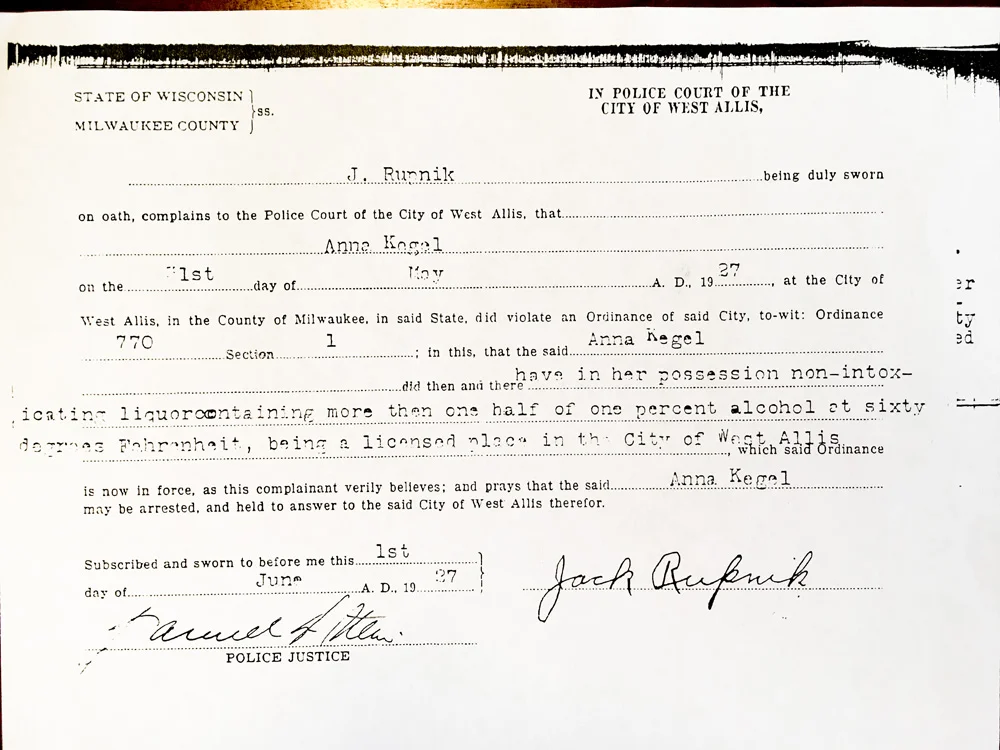 STATE OF WISCONSIN
MILWAUKEE COUNTY
ss.
IN POLICE COURT OF THE
CITY OF WEST ALLIS,
J. Rupnik being duly sworn
on oath, complains to the Police Court of the City of West Allis, that
Anna Kegel
on the 31st day of May A. D., 19 27, at the City of
West Allis, in the County of Milwaukee, in said State, did violate an Ordinance of said City, to-wit: Ordinance
770 Section 1; in this, that the said Anna Kegel
did then and there have in her possession non-intox-
icating liquor containing more then one half of one percent alcohol at sixty
degrees Fahrenheit, being a licensed place in the City of West Allis, which said Ordinance
is now in force, as this complainant verily believes; and prays that the said Anna Kegel
may be arrested, and held to answer to the said City of West Allis therefor.
Subscribed and sworn to before me this 1st
day of June A. D., 19 27
Jack Rupnik
Samuel
POLICE JUSTICE
er
ty
ed